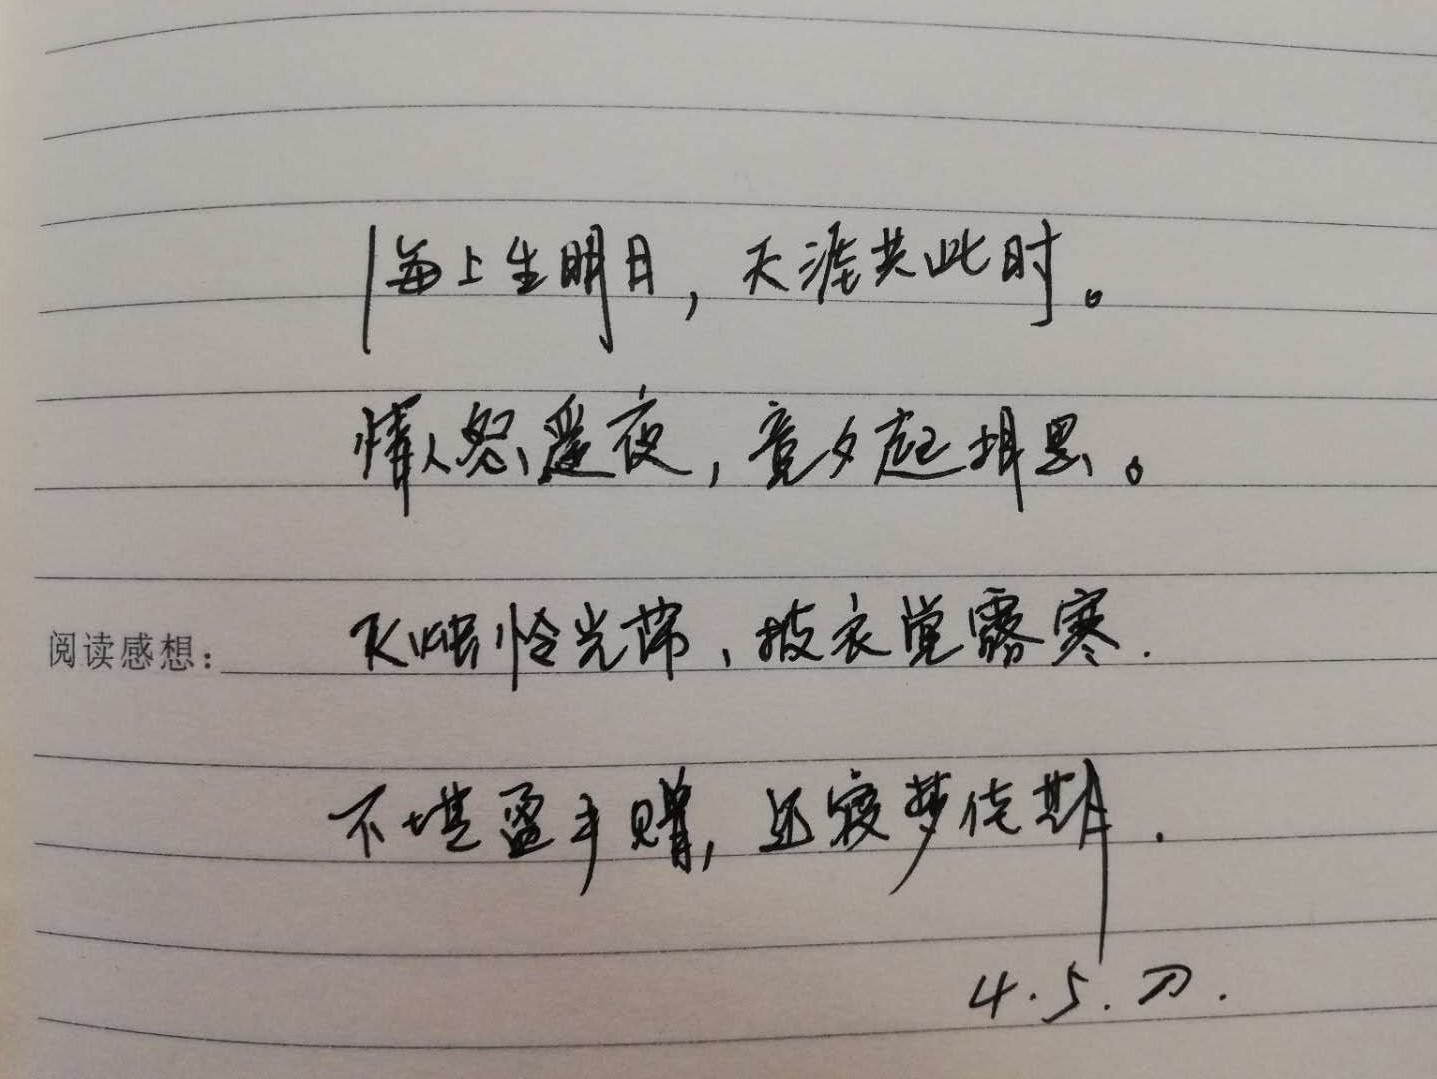 海上生明月，天涯共此时。
情人怨遥夜，竟夕起相思。
阅读感想：灭烛怜光满，披衣觉露寒.
不堪盈手赠，还寝梦佳期.
4.5.刀.